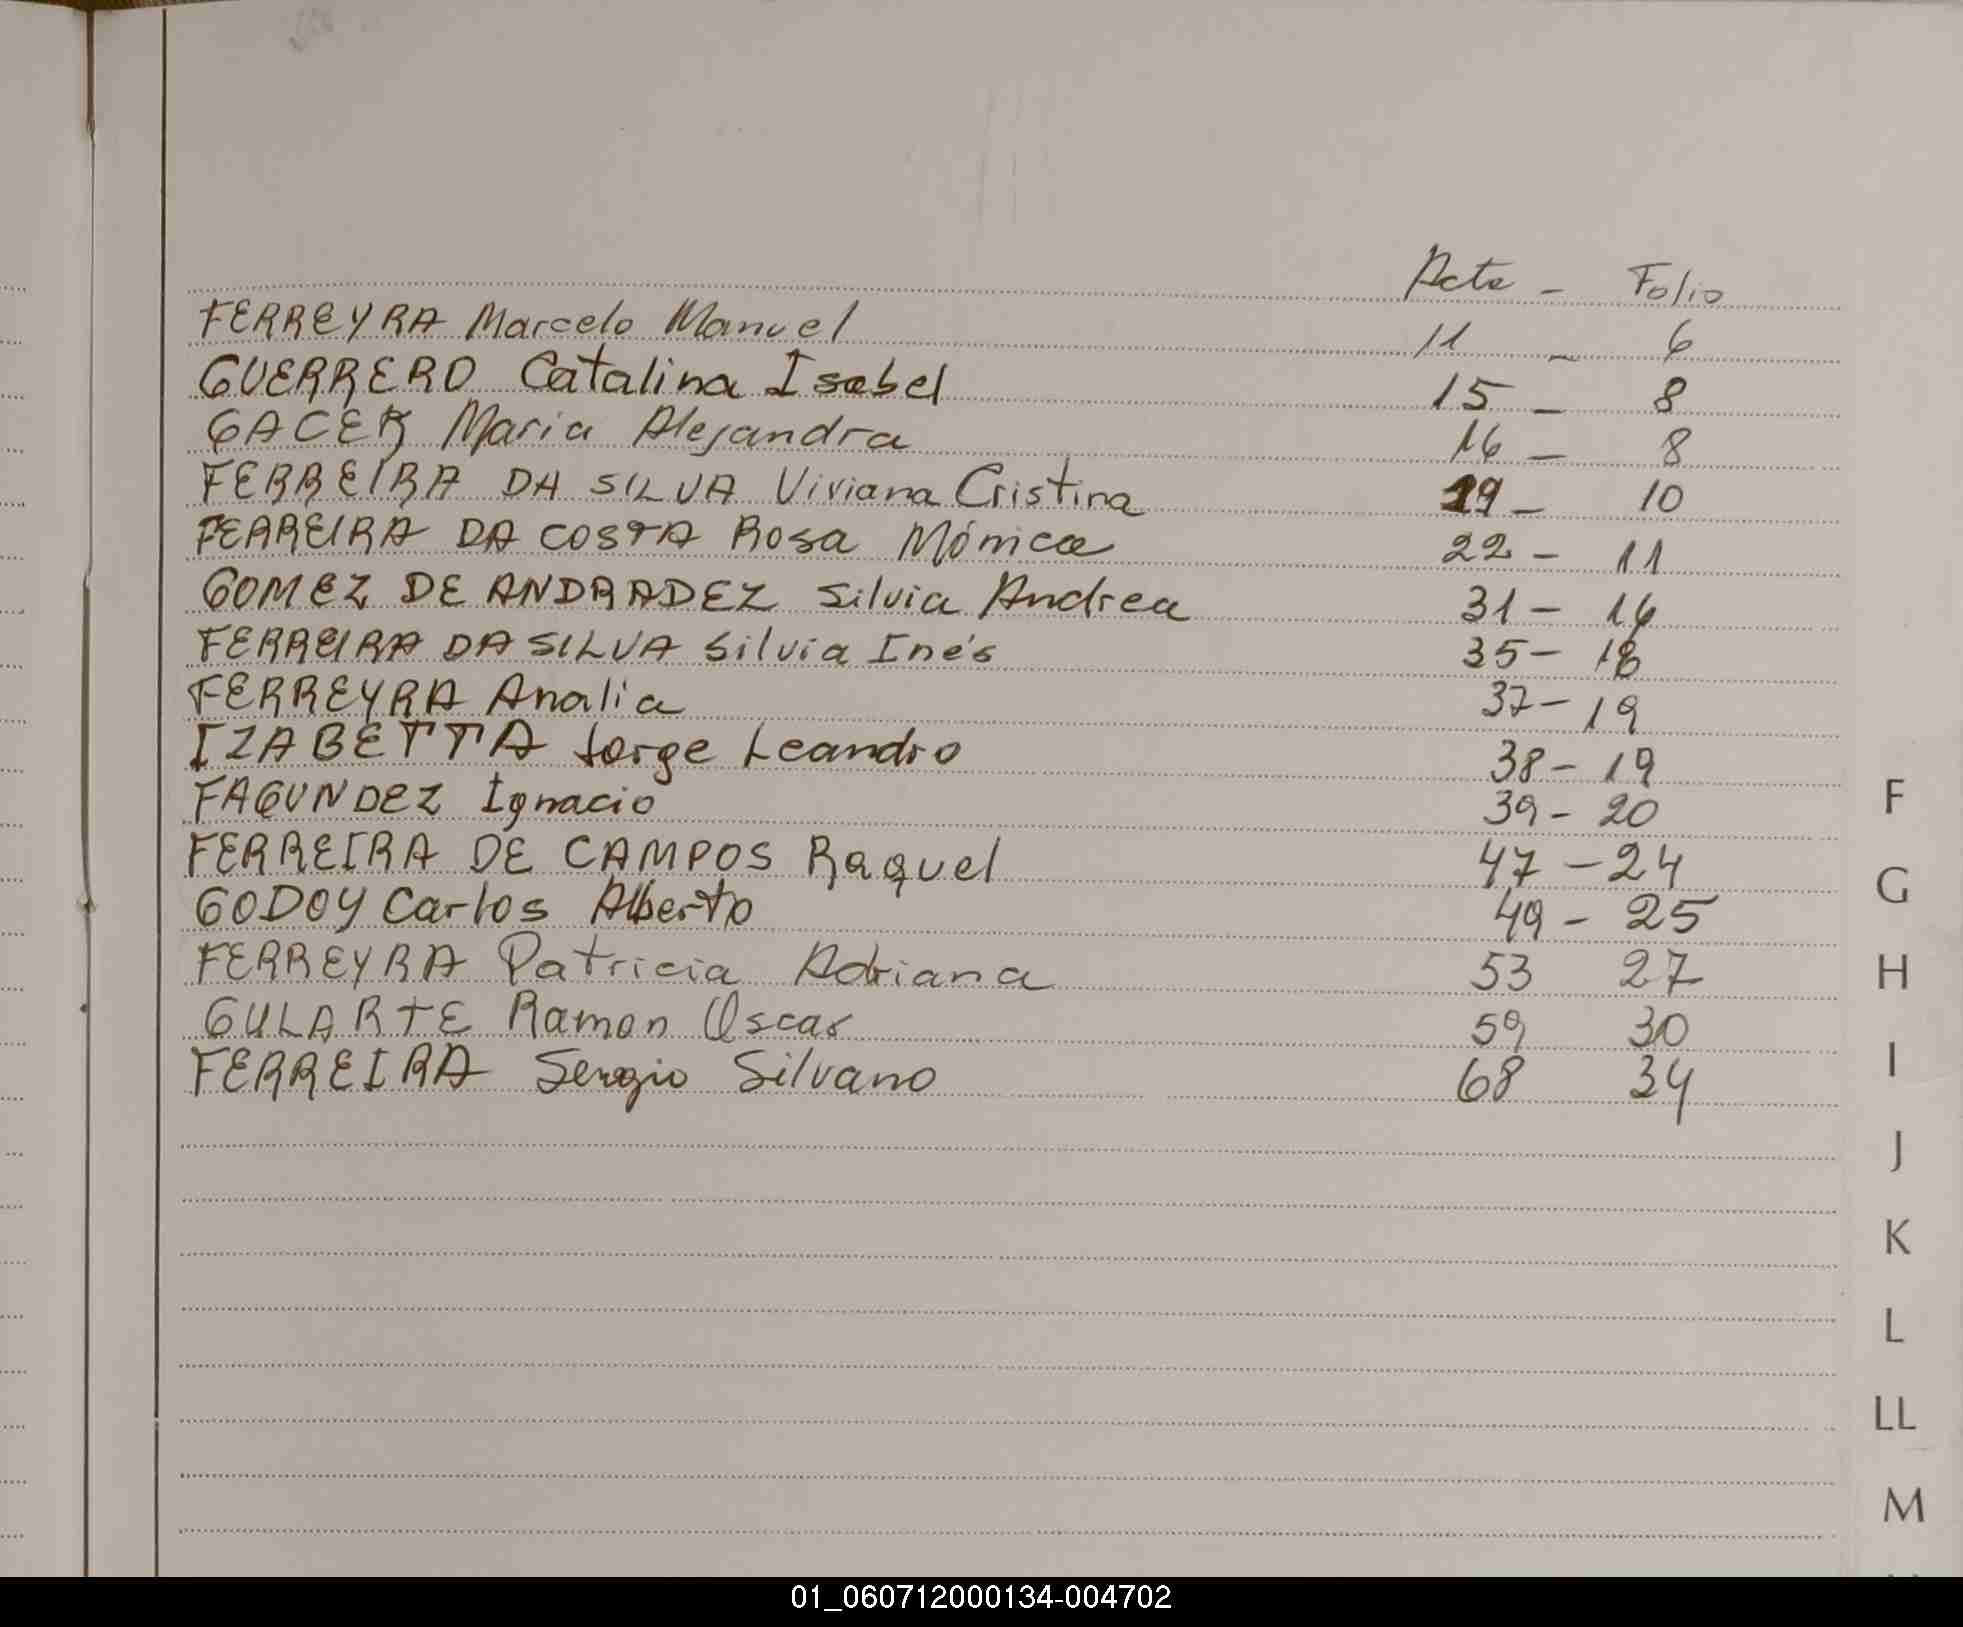 Acta - Folio
FERREYRA Marcelo Manuel 11 - 6
GUERRERO Catalina Isabel 15 - 8
GACEK Maria Alejandra 16 - 8
FERREIRA DA SILVA Viviana Cristina 19 - 10
FERREIRA DA COSTA Rosa Mónica 22 - 11
GOMEZ DE ANDRADEZ Silvia Andrea 31 - 16
FERREIRA DA SILVA Silvia Inés 35 - 18
FERREYRA Analia 37 - 19
IZABETTA Jorge Leandro 38 - 19
FAGUNDEZ Ignacio 39 - 20
FERREIRA DE CAMPOS Raquel 47 - 24
GODOY Carlos Alberto 49 - 25
FERREYRA Patricia Adriana 53 27
GULARTE Ramon Oscar 59 30
FERREIRA Sergio Silvano 68 34
F
G
H
I
J
K
L
LL
M
01_060712000134-004702